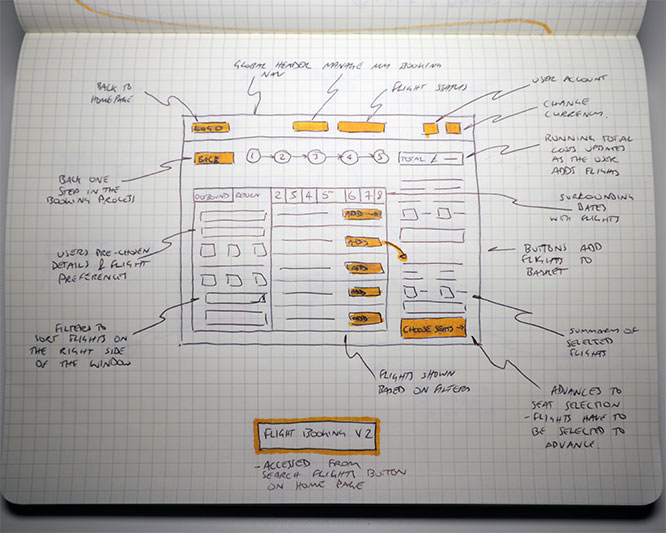 GLOBAL HEADER
NAV
MANAGE MY BOOKING
FLIGHT STATUS
USER ACCOUNT
BACK TO
HOMEPAGE
CHANGE
CURRENCY.
LOGO
RUNNING TOTAL
COSTS UPDATES
AS THE USER
ADDS FLIGHTS
BACK
1 2 3 4 5
TOTAL £ —
BACK ONE
STEP IN THE
BOOKING PROCESS
OUTBOUND RETURN
2 3 4 5 6 7 8
SURROUNDING
DATES
WITH FLIGHTS
ADD →
ADD
ADD
ADD
ADD
USERS PRE-CHOSEN
DETAILS & FLIGHT
PREFERENCES
BUTTONS ADD
FLIGHTS TO
BASKET
FILTERS TO
SORT FLIGHTS ON
THE RIGHT SIDE
OF THE WINDOW
CHOOSE SEATS →
SUMMARY OF
SELECTED
FLIGHTS
FLIGHTS SHOWN
BASED ON FILTERS
ADVANCES TO
SEAT SELECTION
- FLIGHTS HAVE TO
BE SELECTED TO
ADVANCE.
FLIGHT BOOKING V2
- ACCESSED FROM
SEARCH FLIGHTS BUTTON
ON HOME PAGE